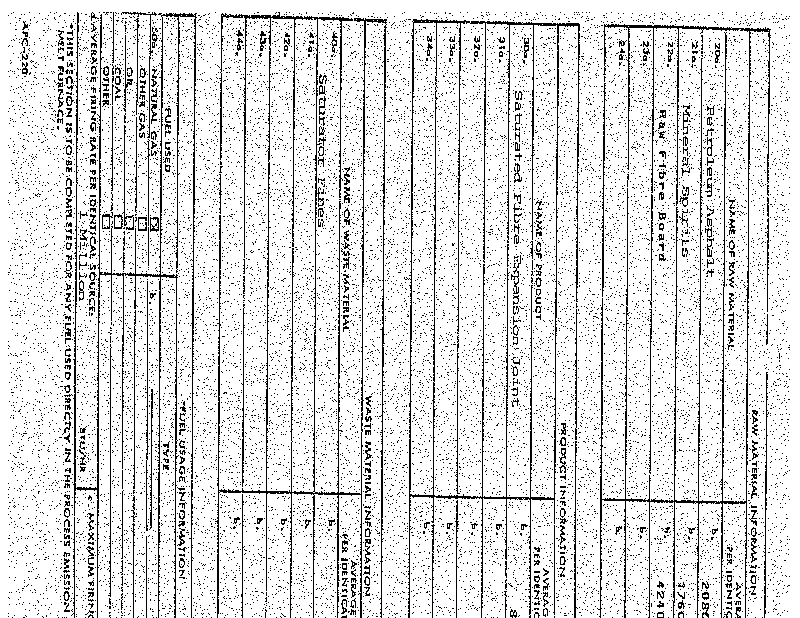 RAW MATERIAL INFORMATION
NAME OF RAW MATERIAL
20a. Petroleum Asphalt b. 2080
21a. Mineral Spirits b. 3760
22a. Raw Fibre Board b. 4240
23a. b.
24a. b.
PRODUCT INFORMATION
NAME OF PRODUCT
AVERAGE
PER IDENTIC
30a. Saturated Fibre Expansion Joint b. 8
31a. b.
32a. b.
33a. b.
34a. b.
WASTE MATERIAL INFORMATION
NAME OF WASTE MATERIAL
AVERAGE
PER IDENTICAL
40a. Saturator Fines b.
41a. b.
42a. b.
43a. b.
44a. b.
*FUEL USAGE INFORMATION
FUEL USED TYPE
50a. NATURAL GAS ☒ b.
OTHER GAS ☐
OIL ☐
COAL ☐
OTHER ☐
AVERAGE FIRING RATE PER IDENTICAL SOURCE:
1 Million BTU/HR
c. MAXIMUM FIRING
*THIS SECTION IS TO BE COMPLETED FOR ANY FUEL USED DIRECTLY IN THE PROCESS EMISSION
MELT FURNACE.
APC-220